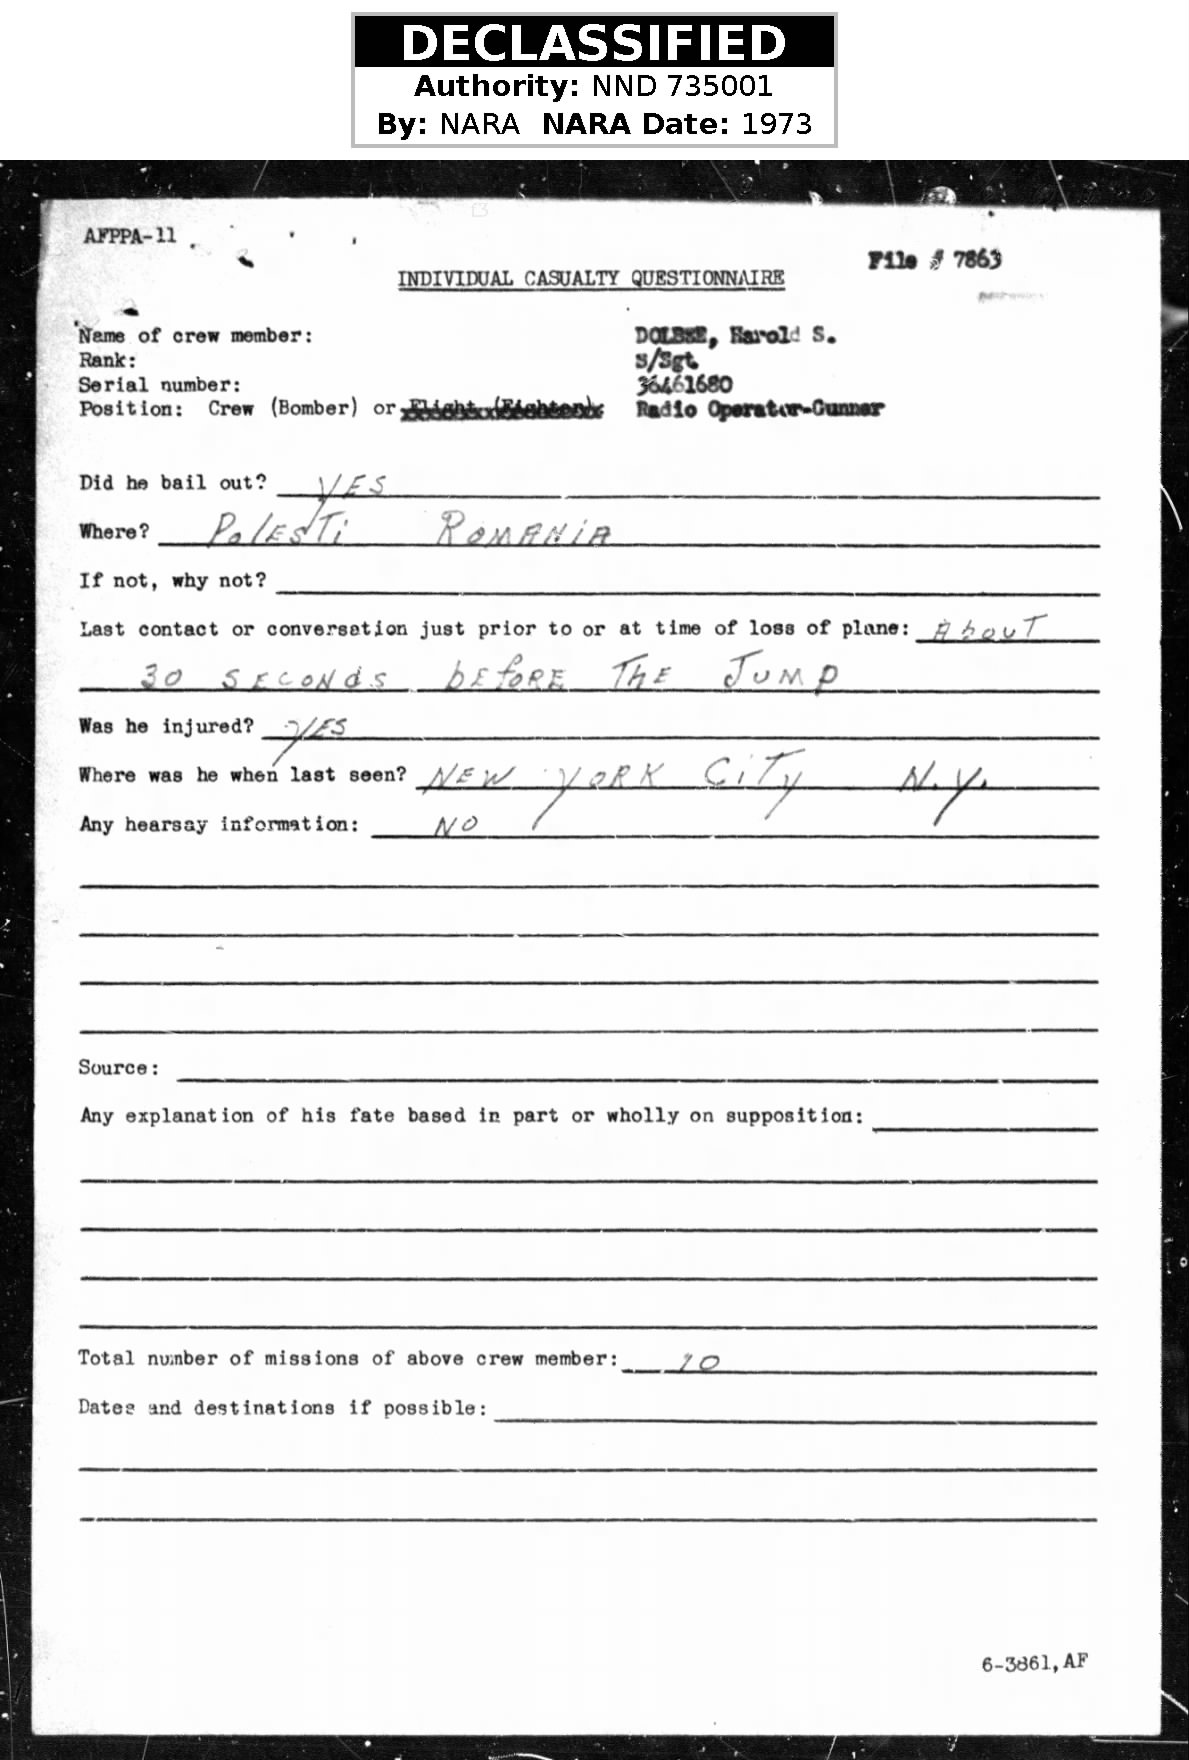 DECLASSIFIED
Authority: NND 735001
By: NARA NARA Date: 1973
AFPPA-11
File # 7863
INDIVIDUAL CASUALTY QUESTIONNAIRE
Name of crew member: DOLBEE, Harold S.
Rank: S/Sgt.
Serial number: 36461680
Position: Crew (Bomber) or Flight (Fighter) Radio Operator-Gunner
Did he bail out? YES
Where? PolEsTi ROMANiA
If not, why not?
Last contact or conversation just prior to or at time of loss of plane: AbouT
30 SECONdS bEfoRE THE JUMP
Was he injured? YES
Where was he when last seen? NEW YORK CiTy N.Y.
Any hearsay information: NO
Source:
Any explanation of his fate based in part or wholly on supposition:
Total number of missions of above crew member: 10
Dates and destinations if possible:
6-3861, AF